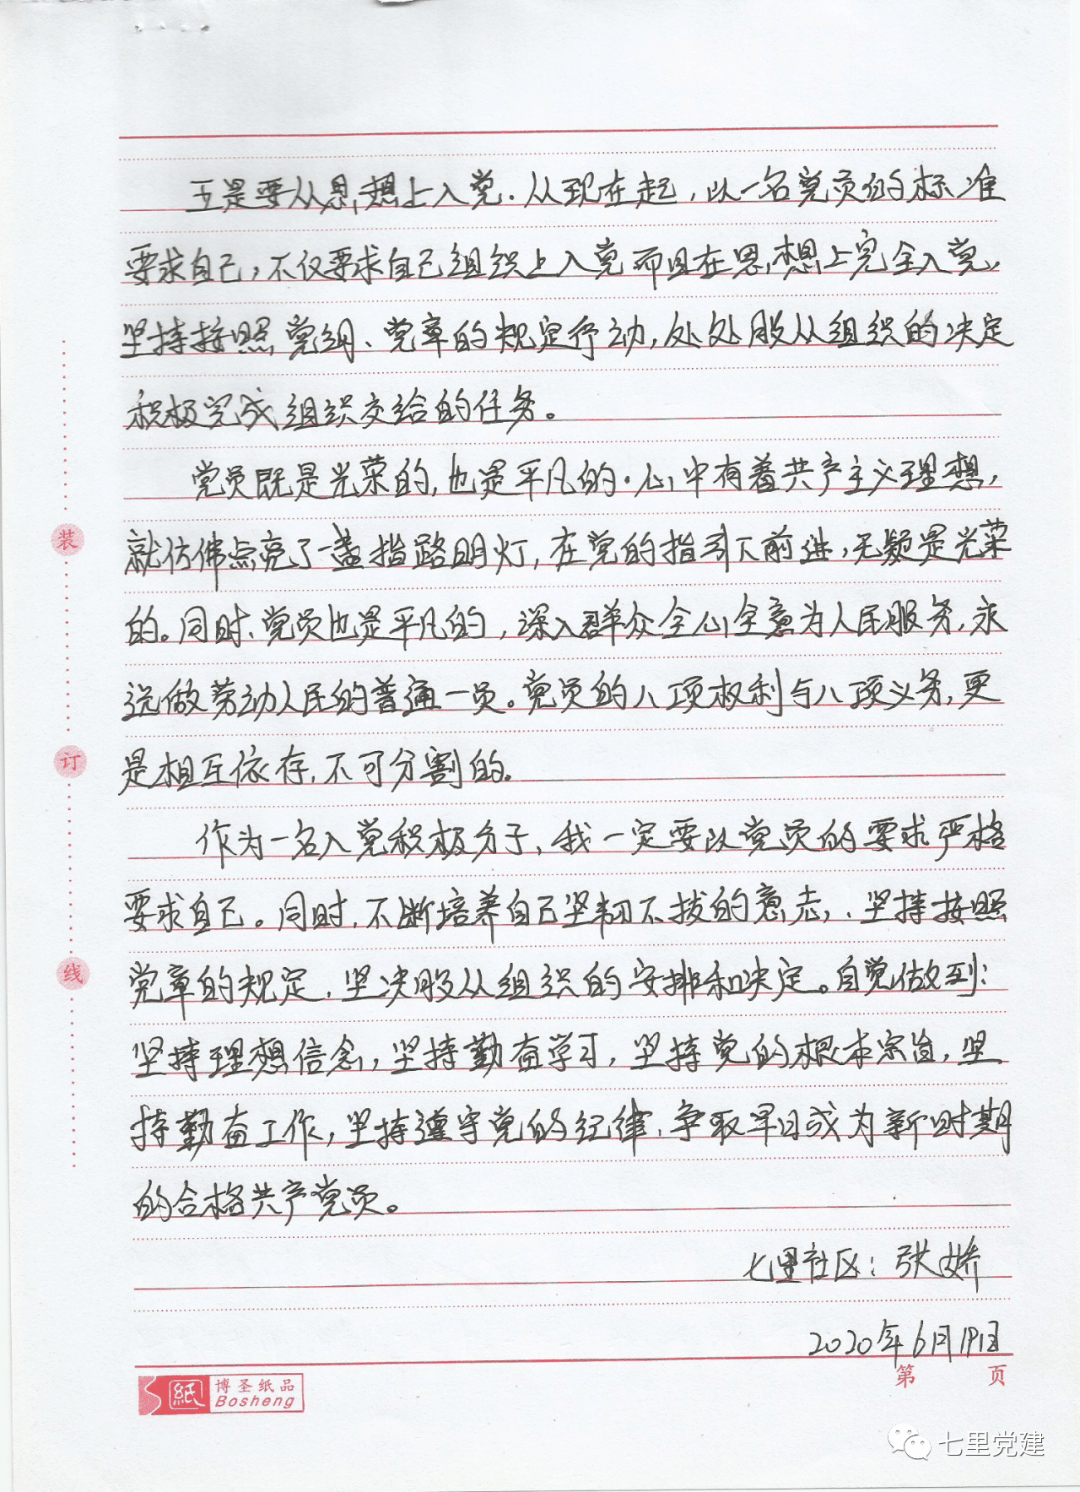 五是要从思想上入党.从现在起,以一名党员的标准
要求自己,不仅要求自己组织上入党而且在思想上完全入党,
坚持按照党纲、党章的规定行动,处处服从组织的决定
积极完成组织交给的任务。
党员既是光荣的,也是平凡的.心中有着共产主义理想,
就仿佛点亮了一盏指路明灯,在党的指引下前进,无疑是光荣
的。同时、党员也是平凡的,深入群众全心全意为人民服务,永
远做劳动人民的普通一员。党员的八项权利与八项义务,更
是相互依存,不可分割的。
作为一名入党积极分子,我一定要以党员的要求严格
要求自己。同时,不断培养自己坚韧不拔的意志,、坚持按照
党章的规定,坚决服从组织的安排和决定。自觉做到:
坚持理想信念,坚持勤奋学习,坚持党的根本宗旨,坚
持勤奋工作,坚持遵守党的纪律,争取早日成为新时期
的合格共产党员。
七里社区:张娇
2020年6月19日
第 页
装
订
线
紙 博圣纸品
Bosheng
七里党建